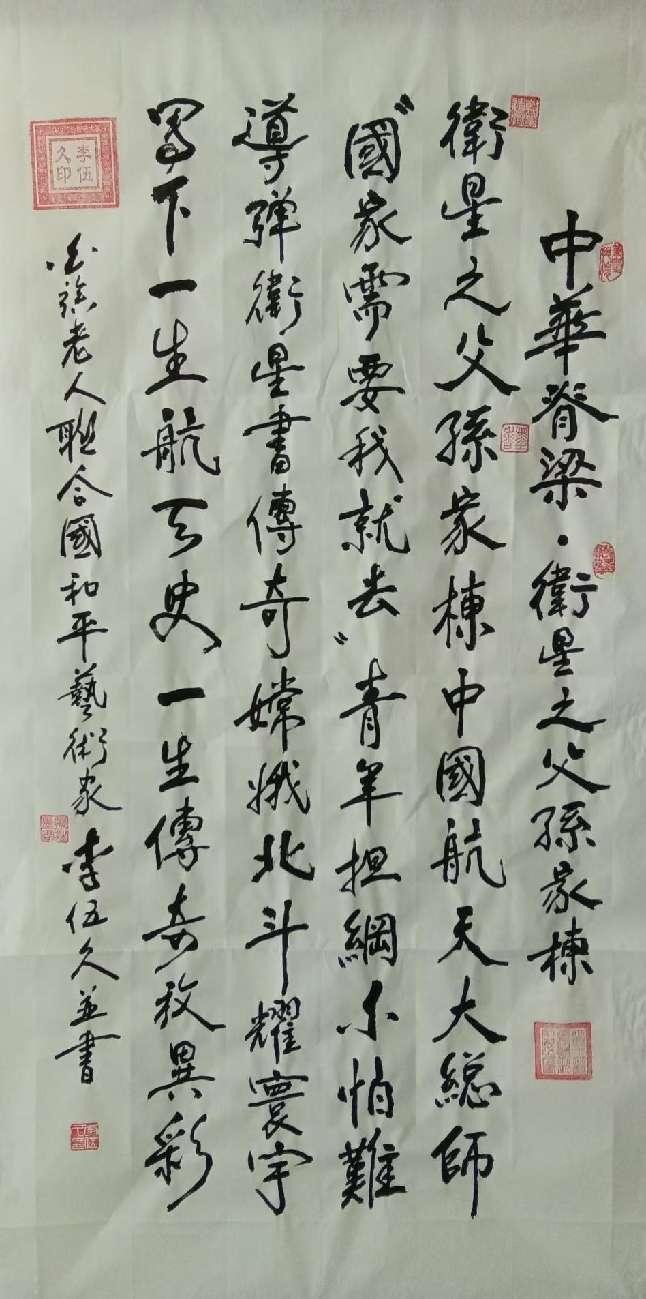 中華脊梁·衛星之父孫家棟
衛星之父孫家棟中國航天大總師
"國家需要我就去"青年担綱不怕難
導弹衛星書傳奇嫦娥北斗耀寰宇
写下一生航天史一生傳奇放異彩
老人聯合國和平藝術家李伍久並書
李伍久印